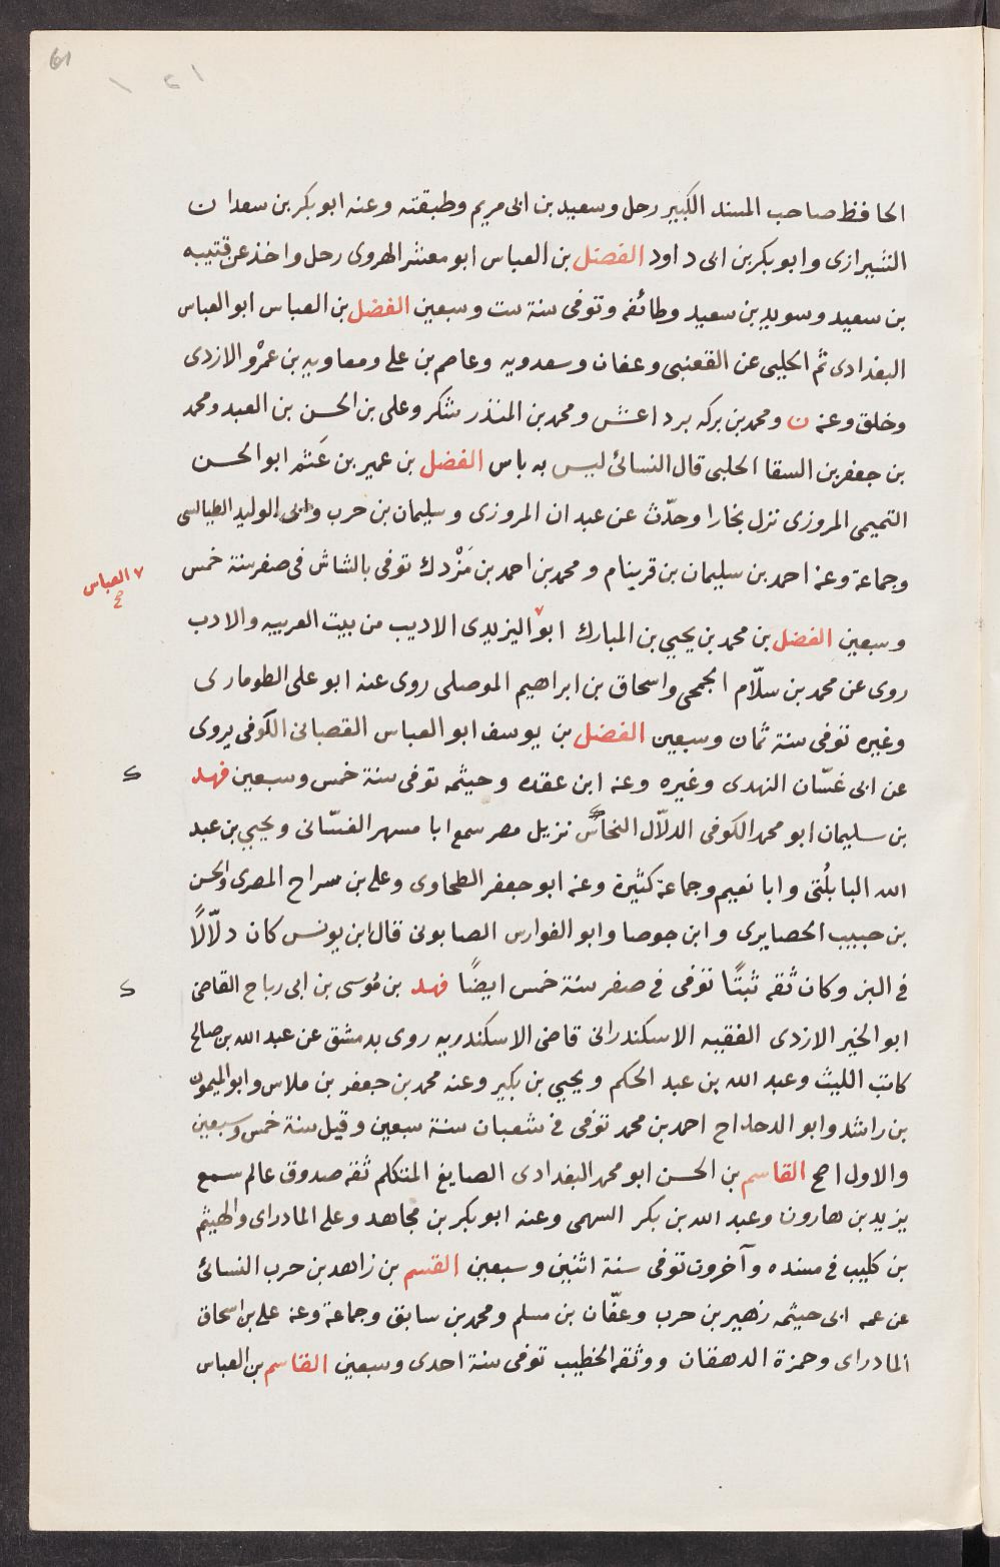 61
الحافظ صاحب المسند الكبير رحل وسعيد بن ابى مريم وطبقته وعنه ابو بكر بن سعدان
الشيرازى وابو بكر بن ابى داود الفضل بن العباس ابو معشر الهروى رحل واخذ عن قتيبه
بن سعيد وسويد بن سعيد وطائفه وتوفى سنة ست وسبعين الفضل بن العباس ابو العباس
البغدادى ثم الحلبى عن القعنبى وعفان وسعدويه وعاصم بن على ومعاويه بن عمرو الازدى
وخلق وعنه ن ومحمد بن بركه برداعس ومحمد بن المنذر شكر وعلى بن الحسن بن العبد ومحمد
بن جعفر بن السقا الحلبى قال النسائ ليس به باس الفضل بن عمير بن عَثم ابو الحسن
التميمى المروزى نزل بخارا وحدّث عن عبدان المروزى وسليمان بن حرب وابى الوليد الطيالسى
وجماعة وعنه احمد بن سليمان بن قرينام ومحمد بن احمد بن مَرْدك توفى بالشاش فى صفر سنة خمس
٧ العباس
وسبعين الفضل بن محمد بن يحيي بن المبارك ابو٧ اليزيدى الاديب من بيت العربيه والادب
روى عن محمد بن سلّام الجمحى واسحاق بن ابراهيم الموصلى روى عنه ابو على الطومارى
وغيره توفى سنة ثمان وسبعين الفضل بن يوسف ابو العباس القصبانى الكوفى يروى
عن ابى غسّان النهدى وغيره وعنه ابن عقده وحيثمه توفى سنة خمس وسبعين فهد
بن سليمان ابو محمد الكوفى الدلاّل النخاس نزيل مصر سمع ابا مسهر الغسّانى ويحيي بن عبد
الله البابلُتى وابا نعيم وجماعة كثيرة وعنه ابو جعفر الطحاوى وعلى بن سراح المصرى والحسن
بن حبيب الحصايرى وابن جوصا وابو الفوارس الصابونى قال ابن يونس كان دلّالًا
فى البز وكان ثقه ثبتًا توفى فى صفر سنة خمس ايضًا فهد بن مُوسى بن ابى رباح القاضى
ابو الخير الازدى الفقيه الاسكندرانى قاضى الاسكندريه روى بدمشق عن عبد الله بن صالح
كاتب الليث وعبد الله بن عبد الحكم ويحيي بن بكير وعنه محمد بن جعفر بن ملاس وابو الميمون
بن راشد وابو الدحداح احمد بن محمد توفى فى شعبان سنة سبعين وقيل سنة خمس وسبعين
والاول اصح القاسم بن الحسن ابو محمد البغدادى الصايغ المتكلم ثقه صدوق عالم سمع
يزيد بن هارون وعبد الله بن بكر السهمى وعنه ابو بكر بن مجاهد وعلى المادراى والهيثم
بن كليب فى مسنده وآخرون توفى سنة اثنين وسبعين القسم بن زاهد بن حرب النسائ
عن عمه ابى حيثمه زهير بن حرب وعفّان بن مسلم ومحمد بن سابق وجماعة وعنه على بن اسحاق
المادراى وحمزة الدهقان ووثقه الخطيب توفى سنة احدى وسبعين القاسم بن العباس